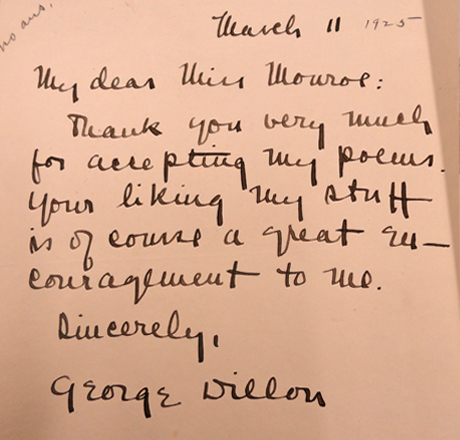 no ans.
March 11 1925
My dear Miss Monroe:
Thank you very much
for accepting my poems.
Your liking my stuff
is of course a great en-
couragement to me.
Sincerely,
George Dillon